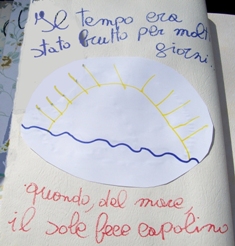 Il tempo era
stato brutto per molti
giorni.
quando, dal mare,
il sole fece capolino